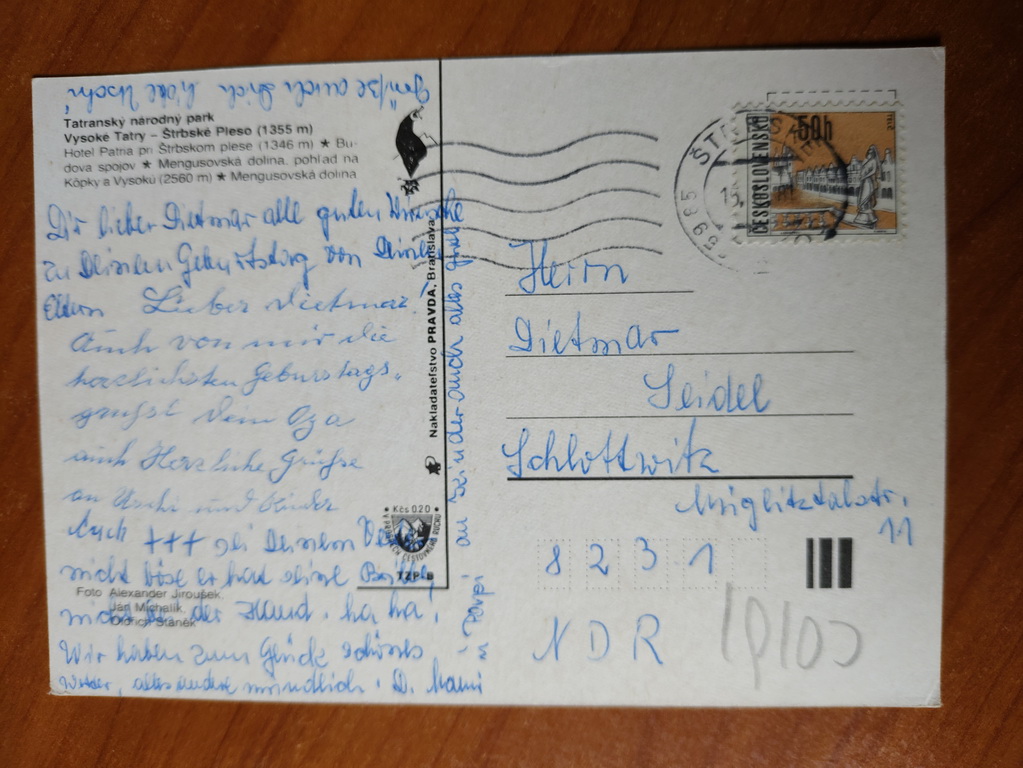 Grüße auch Dich liebe Uschi
Tatranský národný park
Vysoké Tatry – Štrbské Pleso (1355 m)
Hotel Patria pri Štrbskom plese (1346 m) ★ Bu-
dova spojov ★ Mengusovská dolina, pohľad na
Kôpky a Vysokú (2560 m) ★ Mengusovská dolina
Dir lieber Dietmar alle guten Wünsche
zu Deinem Geburtstag von Deinen
Eltern Lieber Dietmar!
Auch von mir die
herzlichsten Geburstags-
grüße Dein Opa
auch Herzliche Grüße
an Uschi und Kinder
Auch +++ sei Deinem
nicht böse er hat seine Brille
nicht der Hand. ha ha!
Wir haben zum Glück schönes
Wetter, alles andere mündlich. D. Mami
u Papi
an Kinder auch alles
Foto Alexander Jiroušek,
Ján Michalík,
Oldřich Staněk
Nakladateľstvo PRAVDA, Bratislava
Kčs 0,20
TZP B
ČESKOSLOVENSKO
50h
05985 ŠT
Herrn
Dietmar
Seidel
Schlottwitz
Müglitztalstr.
11
8231
NDR